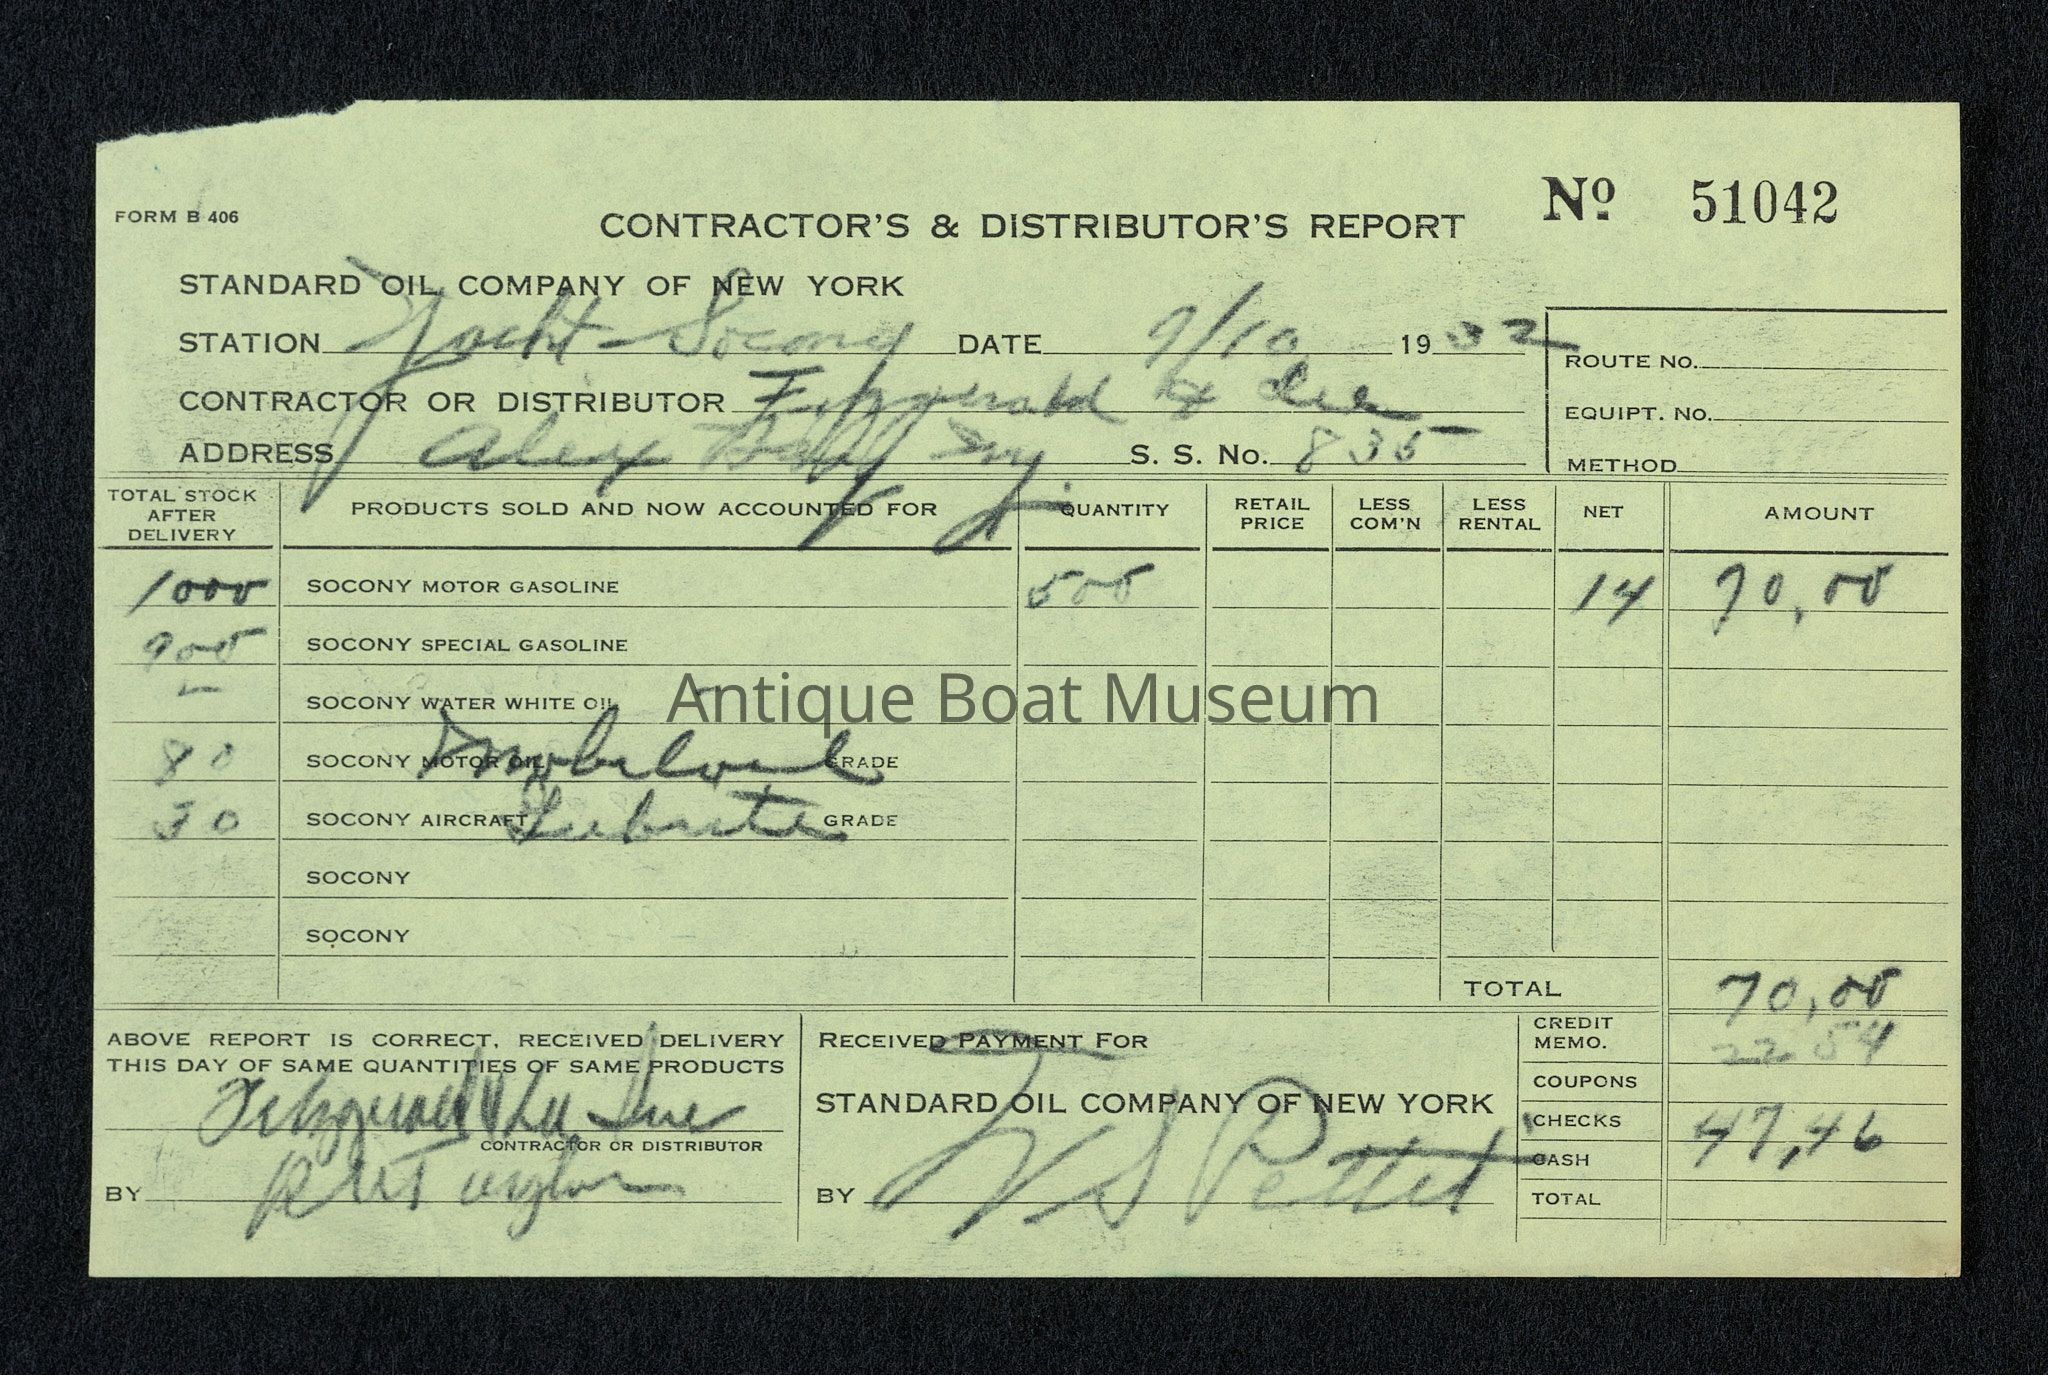 FORM B 406
CONTRACTOR'S & DISTRIBUTOR'S REPORT
Nº 51042
STANDARD OIL COMPANY OF NEW YORK
STATION Yacht - Socony DATE 9/10 1932
ROUTE NO.
CONTRACTOR OR DISTRIBUTOR Fitzgerald & Lee
EQUIPT. NO.
ADDRESS Alex Bay N.Y. S. S. No. 835
METHOD
TOTAL STOCK AFTER DELIVERY PRODUCTS SOLD AND NOW ACCOUNTED FOR QUANTITY RETAIL PRICE LESS COM'N LESS RENTAL NET AMOUNT
1000 SOCONY MOTOR GASOLINE 500 14 70,00
900 SOCONY SPECIAL GASOLINE
- SOCONY WATER WHITE OIL
Antique Boat Museum
80 SOCONY MOTOR OIL Mobiloil GRADE
30 SOCONY AIRCRAFT GRADE
SOCONY
SOCONY
TOTAL 70,00
ABOVE REPORT IS CORRECT, RECEIVED DELIVERY
THIS DAY OF SAME QUANTITIES OF SAME PRODUCTS
Fitzgerald & Lee
CONTRACTOR OR DISTRIBUTOR
BY Taylor
RECEIVED PAYMENT FOR
STANDARD OIL COMPANY OF NEW YORK
BY Pettit
CREDIT MEMO. 22 54
COUPONS
CHECKS 47,46
CASH
TOTAL